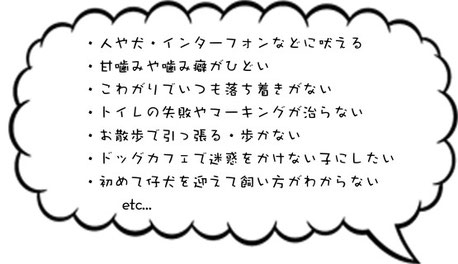 ・人や犬・インターフォンなどに吠える
・甘噛みや噛み癖がひどい
・こわがりでいつも落ち着きがない
・トイレの失敗やマーキングが治らない
・お散歩で引っ張る・歩かない
・ドッグカフェで迷惑をかけない子にしたい
・初めて仔犬を迎えて飼い方がわからない
etc...